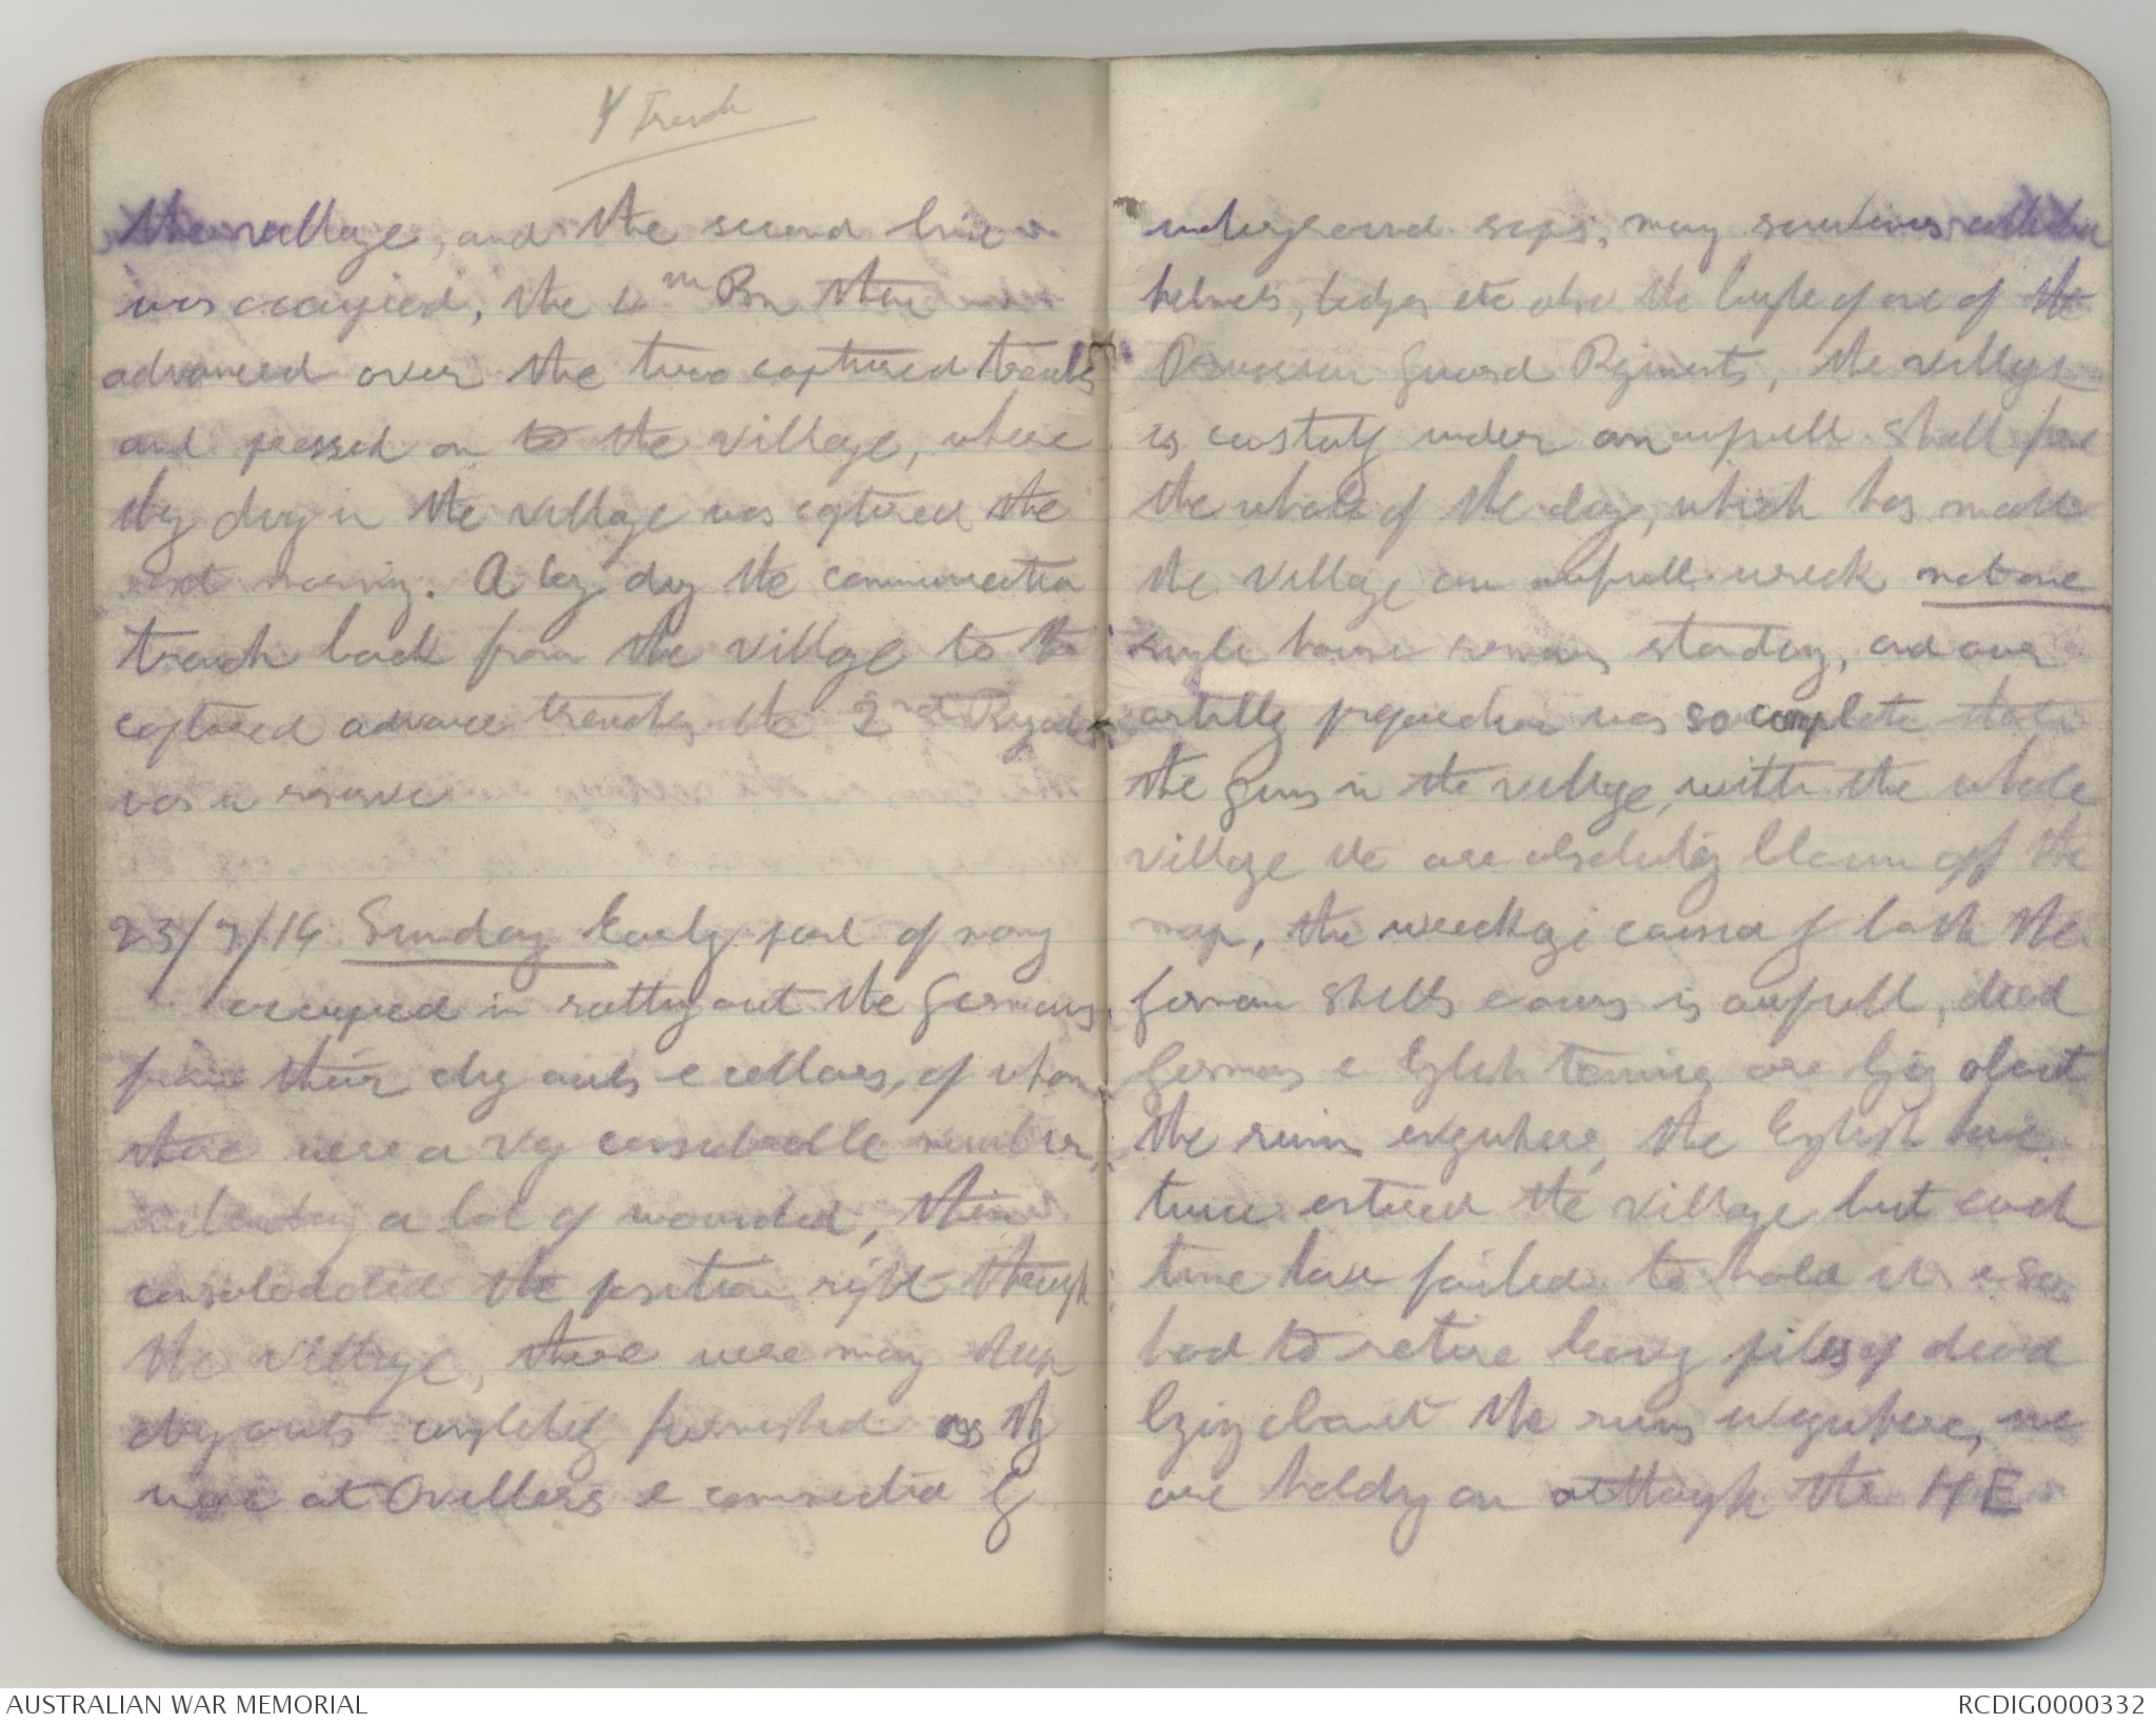 4 Trench
the village, and the second line
was occupied, the 4th Bn then
advanced over the two captured trenches
and pressed on to the village, where
they dug in the village was captured the
next morning. A Coy dug the communication
trench back from the village to the
captured advance trenches the 2nd Brigade
was in reserve
23/7/16 Sunday Early part of morng
occupied in rutting out the Germans
from their dug outs & cellars, of whom
there were a very considerable number,
including a lot of wounded, then
consolodated the position right through
the village, there were many deep
dug outs completely furnished as they
were at Ovillers & connected by
underground saps, many souvenirs collected
helmets, badges etc also the bugle of one of the
Prussian Guard Regiments, the village
is constantly under an awfull shell fire
the whole of the day, which has made
the village an awfull wreck not one
single house remains standing, and our
artillery preparation was so complete that
the guns in the village, with the whole
village etc are absolutely blown off the
map, the wreckage caused by both the
German shells & ours is awfull, dead
Germans & English Tommies are lying about
the ruins everywhere, the English have
twice entered the village but each
time have failed to hold it & so
had to retire leaving piles of dead
lying about the ruins everywhere, we
are holding on although the HE
AUSTRALIAN WAR MEMORIAL
RCDIG0000332